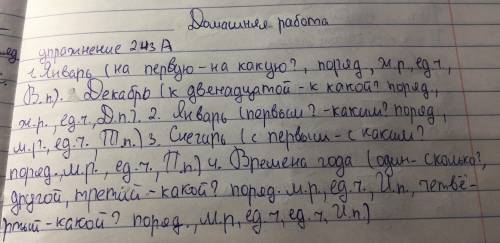 Домашняя работа
ед. упражнение 243 А
1. Январь (на первую - на какую?, поряд., ж.р., ед.ч.,
В.п). Декабрь (к двенадцатой - к какой? поряд.,
ж.р., ед.ч., Д.п.). 2. Январь (первым? - каким? поряд.,
м.р., ед.ч. Т.п.) 3. Снегарь (с первым - с каким?
поряд., м.р., ед.ч., П.п.) 4. Времена года (один - сколько?,
другой, третий - какой? поряд. м.р., ед.ч., И.п., четвё-
ртый - какой? поряд., м.р, ед.ч, ед.ч, И.п)